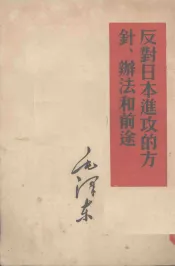 反對日本進攻的方
針、辦法和前途
毛澤东